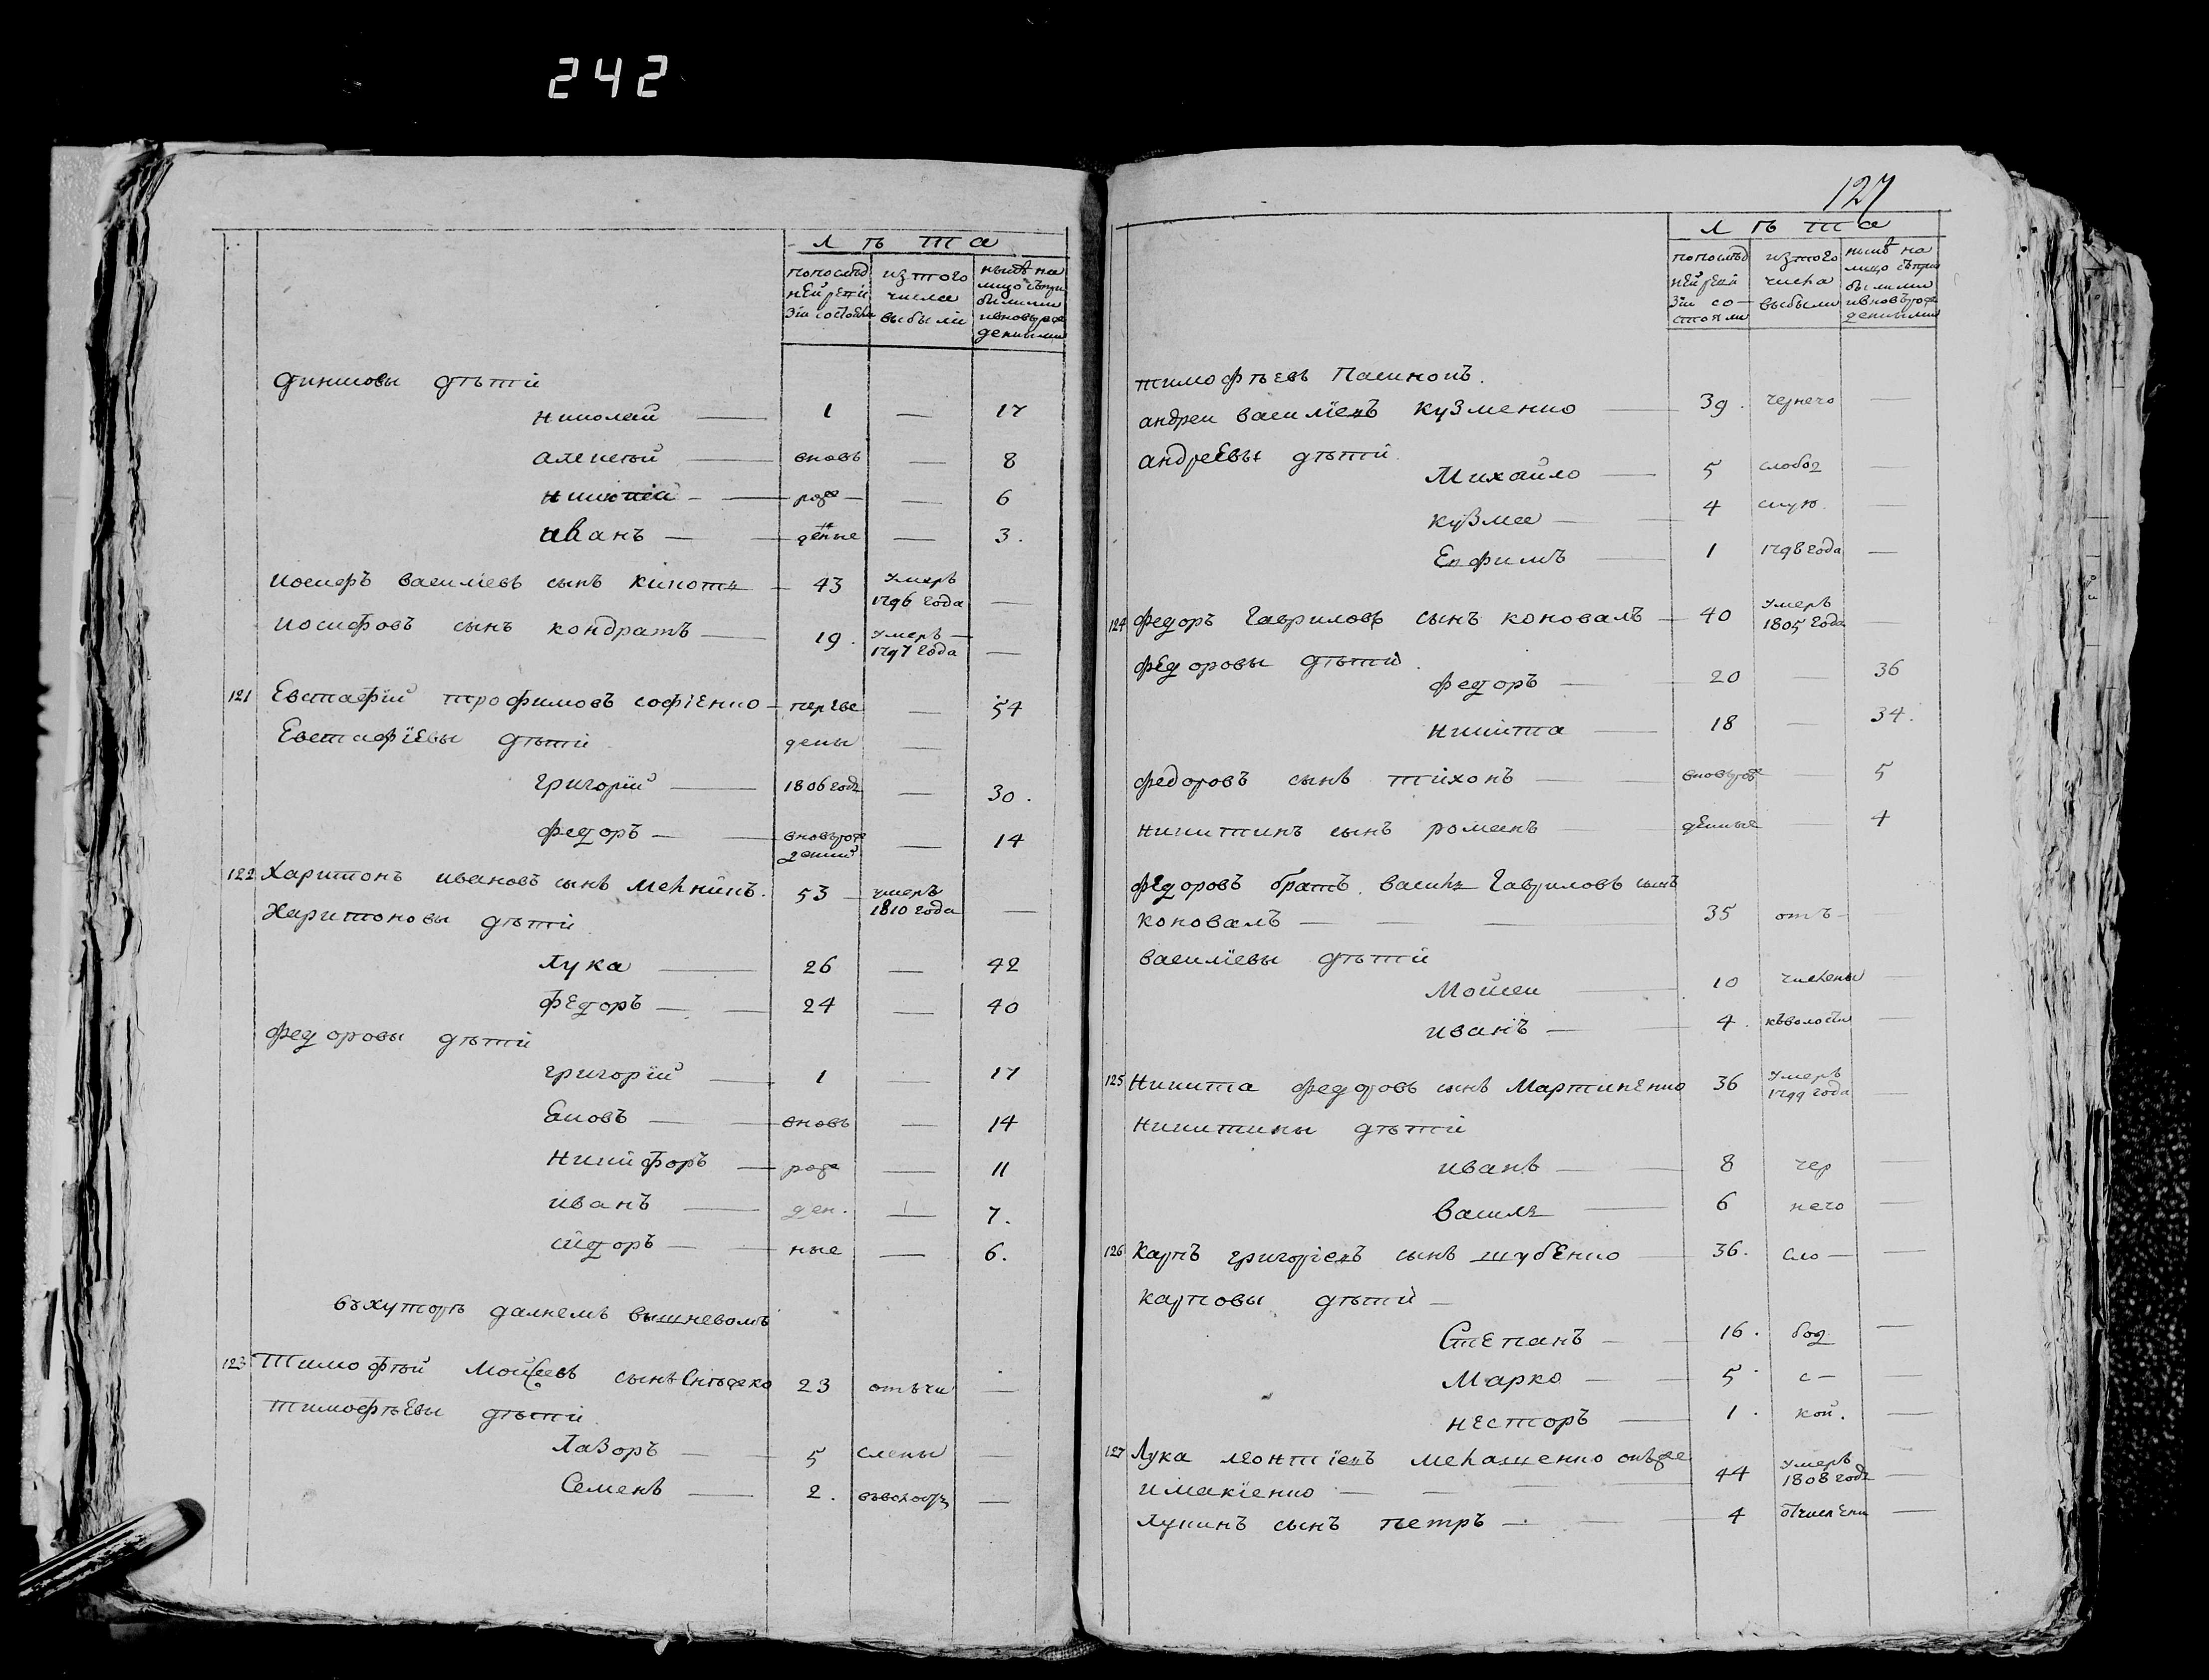 242
лѣта
попослѣд ней ревизіи состояли
изтого числа выбыли
нынѣ на лицо съпри былыми ивновьрож денными
дѣти
николай — 1 — 17
алексѣй — вновь — 8
— рож — 6
иванъ — денные — 3.
иосифъ василіевъ сынъ — 43 умеръ 1796 года —
иосифовъ сынъ кондратъ — 19. умеръ 1797 года —
121 Евстафій трофимовъ софіенко — переве — 54
Евстафіевы дѣти дены —
григорій — 1806 года — 30.
федоръ — вновьрож денный — 14
122 Харитонъ ивановъ сынъ 53 — умеръ 1810 года —
Харитоновы дѣти
лука — 26 — 42
федоръ — 24 — 40
федоровы дѣти
григорій — 1 — 17
— вновь — 14
никифоръ — рож — 11
иванъ — ден. — 7.
сидоръ — ные — 6.
въхуторѣ далнемъ вышневомъ
123 Тимофѣй Мойсеевъ сынъ 23 отъчи —
тимофѣевы дѣти
лазоръ — 5 слены —
Семенъ — 2. —
127
лѣта
попослѣд ней ревизіи состояли
изтого числа выбыли
нынѣ на лицо съпри былыми ивновьрож денными
тимофѣевъ
андрей василіевъ кузменко — 39. чернего —
андреевы дѣти
Михайло — 5 слобод —
кузма — 4 скую. —
Ефимъ — 1 1798 года —
124 федоръ Гавриловъ сынъ коновалъ — 40 умеръ 1805 года —
федоровы дѣти.
федоръ — 20 — 36
никита — 18 — 34.
федоровъ сынъ тихонъ — вновьрож — 5
никитинъ сынъ романъ денные — 4
федоровъ братъ василь Гавриловъ сынъ
коновалъ — 35 отъ —
василіевы дѣти
Мойсей — 10 числены —
иванъ — 4. —
125 Никита федоровъ сынъ Мартиненко 36 умеръ 1799 года —
никитины дѣти
иванъ — 8 чер —
василь — 6 него
126 Карпъ григоріевъ сынъ шубенко — 36. сло — —
карповы дѣти —
Степанъ — 16. бод —
Марко — 5 с —
несторъ — 1. кой. —
127 Лука леонтіевъ онъже
имакіенко — 44 умеръ 1808 года —
лукинъ сынъ петръ — 4 отчислены —